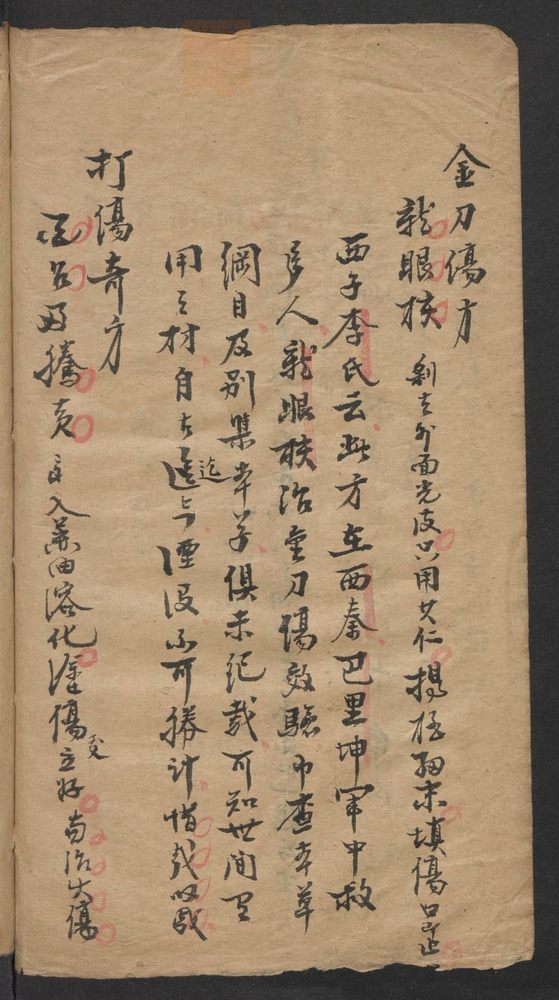 金刀傷方
龍眼核 剝去外面光皮只用其仁搗極細末填傷口即止
西子李氏云此方在西秦巴里坤軍中救
多人龍眼核治金刀傷效驗而查本草
綱目及別集本草俱未紀載可知世間空
用之材自古迄今湮没不可勝計惜哉
打傷奇方
黃 入蔴油溶化塗傷處立好 亦治火傷